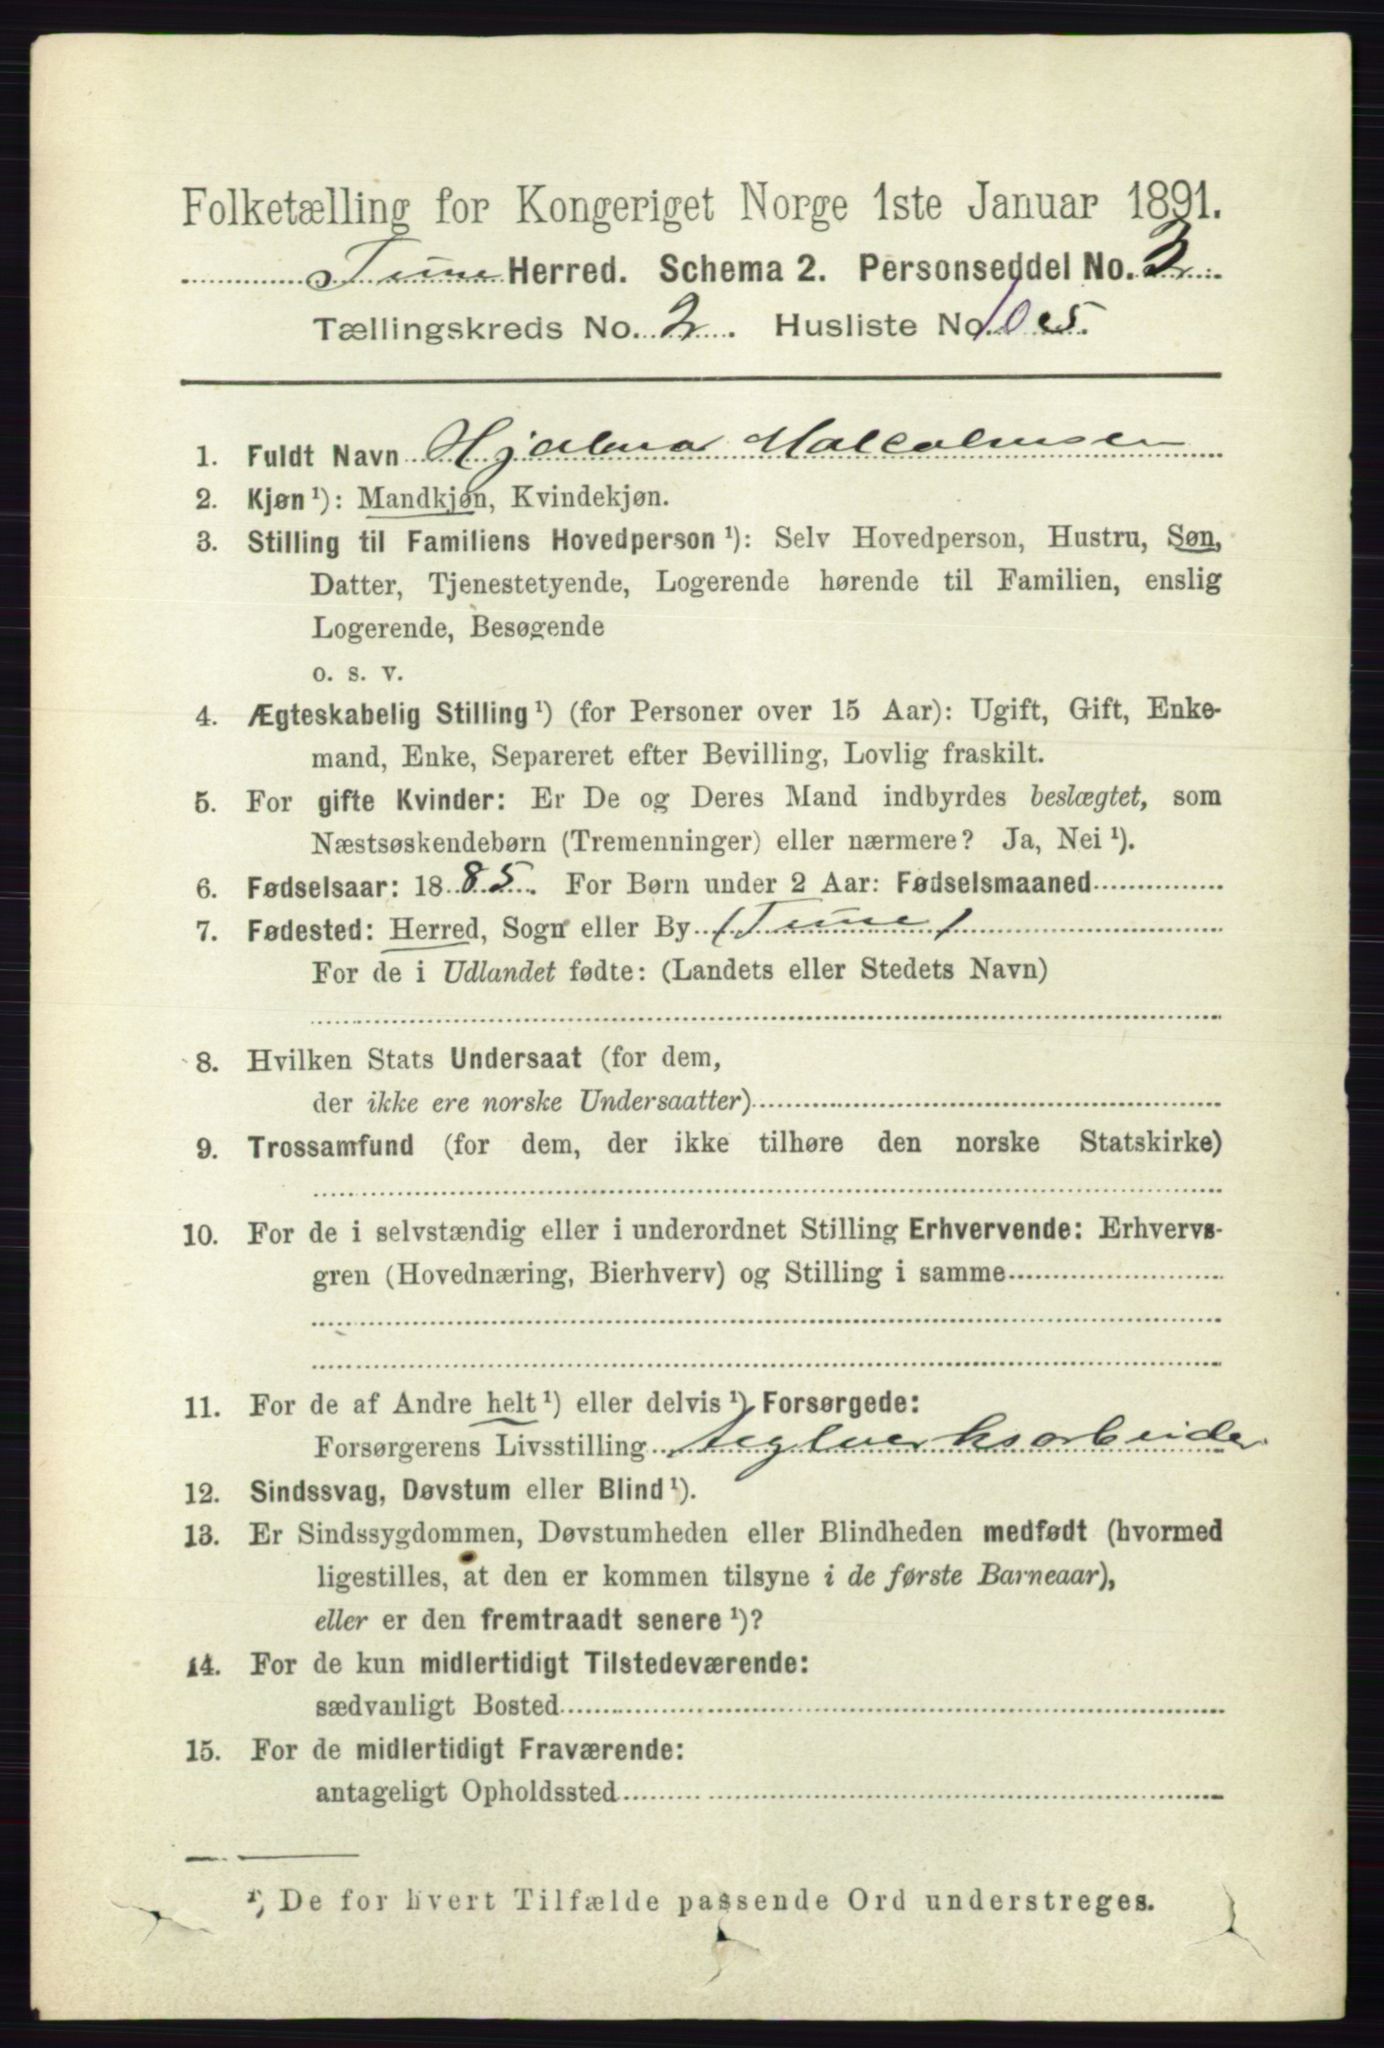 Folketælling for Kongeriget Norge 1ste Januar 1891.
Tune Herred. Schema 2. Personseddel No. 3
Tællingskreds No. 2. Husliste No. 105.
1. Fuldt Navn Hjalmar Malcolmsen
2. Kjøn ¹): Mandkjøn, Kvindekjøn.
3. Stilling til Familiens Hovedperson ¹): Selv Hovedperson, Hustru, Søn,
Datter, Tjenestetyende, Logerende hørende til Familien, enslig
Logerende, Besøgende
o. s. v.
4. Ægteskabelig Stilling ¹) (for Personer over 15 Aar): Ugift, Gift, Enke-
mand, Enke, Separeret efter Bevilling, Lovlig fraskilt.
5. For gifte Kvinder: Er De og Deres Mand indbyrdes beslægtet, som
Næstsøskendebørn (Tremenninger) eller nærmere? Ja, Nei ¹).
6. Fødselsaar: 1885. For Børn under 2 Aar: Fødselsmaaned
7. Fødested: Herred, Sogn eller By (Tune)
For de i Udlandet fødte: (Landets eller Stedets Navn)
8. Hvilken Stats Undersaat (for dem,
der ikke ere norske Undersaatter)
9. Trossamfund (for dem, der ikke tilhøre den norske Statskirke)
10. For de i selvstændig eller i underordnet Stilling Erhvervende: Erhvervs-
gren (Hovednæring, Bierhverv) og Stilling i samme
11. For de af Andre helt ¹) eller delvis ¹) Forsørgede:
Forsørgerens Livsstilling teglverksarbeider
12. Sindssvag, Døvstum eller Blind ¹).
13. Er Sindssygdommen, Døvstumheden eller Blindheden medfødt (hvormed
ligestilles, at den er kommen tilsyne i de første Barneaar),
eller er den fremtraadt senere ¹)?
14. For de kun midlertidigt Tilstedeværende:
sædvanligt Bosted
15. For de midlertidigt Fraværende:
antageligt Opholdssted
¹) De for hvert Tilfælde passende Ord understreges.